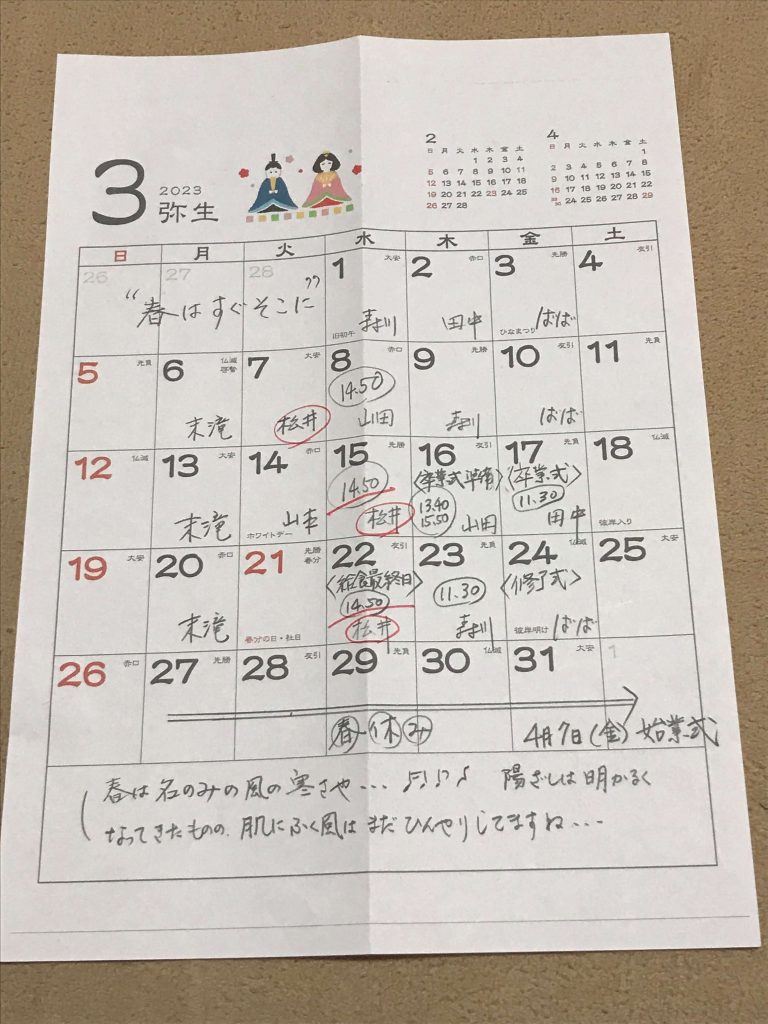 3 2023 弥生
2
日 月 火 水 木 金 土
1 2 3 4
5 6 7 8 9 10 11
12 13 14 15 16 17 18
19 20 21 22 23 24 25
26 27 28
4
日 月 火 水 木 金 土
1
2 3 4 5 6 7 8
9 10 11 12 13 14 15
16 17 18 19 20 21 22
23/30 24 25 26 27 28 29
日 月 火 水 木 金 土
26 27 28 1 大安 2 赤口 3 先勝 4 友引
“春はすぐそこに”
寿川 田中 ばば
旧初午 ひなまつり
5 先負 6 仏滅 啓蟄 7 大安 8 赤口 9 先勝 10 友引 11 先負
14.50
末滝 松井 山田 寿川 ばば
12 仏滅 13 大安 14 赤口 15 先勝 16 友引 17 先負 18 仏滅
14.50 〈卒業式準備〉 〈卒業式〉
13.40 11.30
15.50
末滝 山本 松井 山田 田中
ホワイトデー 彼岸入り
19 大安 20 赤口 21 先勝 春分 22 友引 23 先負 24 仏滅 25 大安
〈給食最終日〉 〈修了式〉
14.50 11.30
末滝 松井 寿川 ばば
春分の日・社日 彼岸明け
26 赤口 27 先勝 28 友引 29 先負 30 仏滅 31 大安 1
春休み 4月7日(金)始業式
春は名のみの風の寒さや… ♬♪♪ 陽ざしは明かるく
なってきたものの、肌にふく風はまだひんやりしてますね…